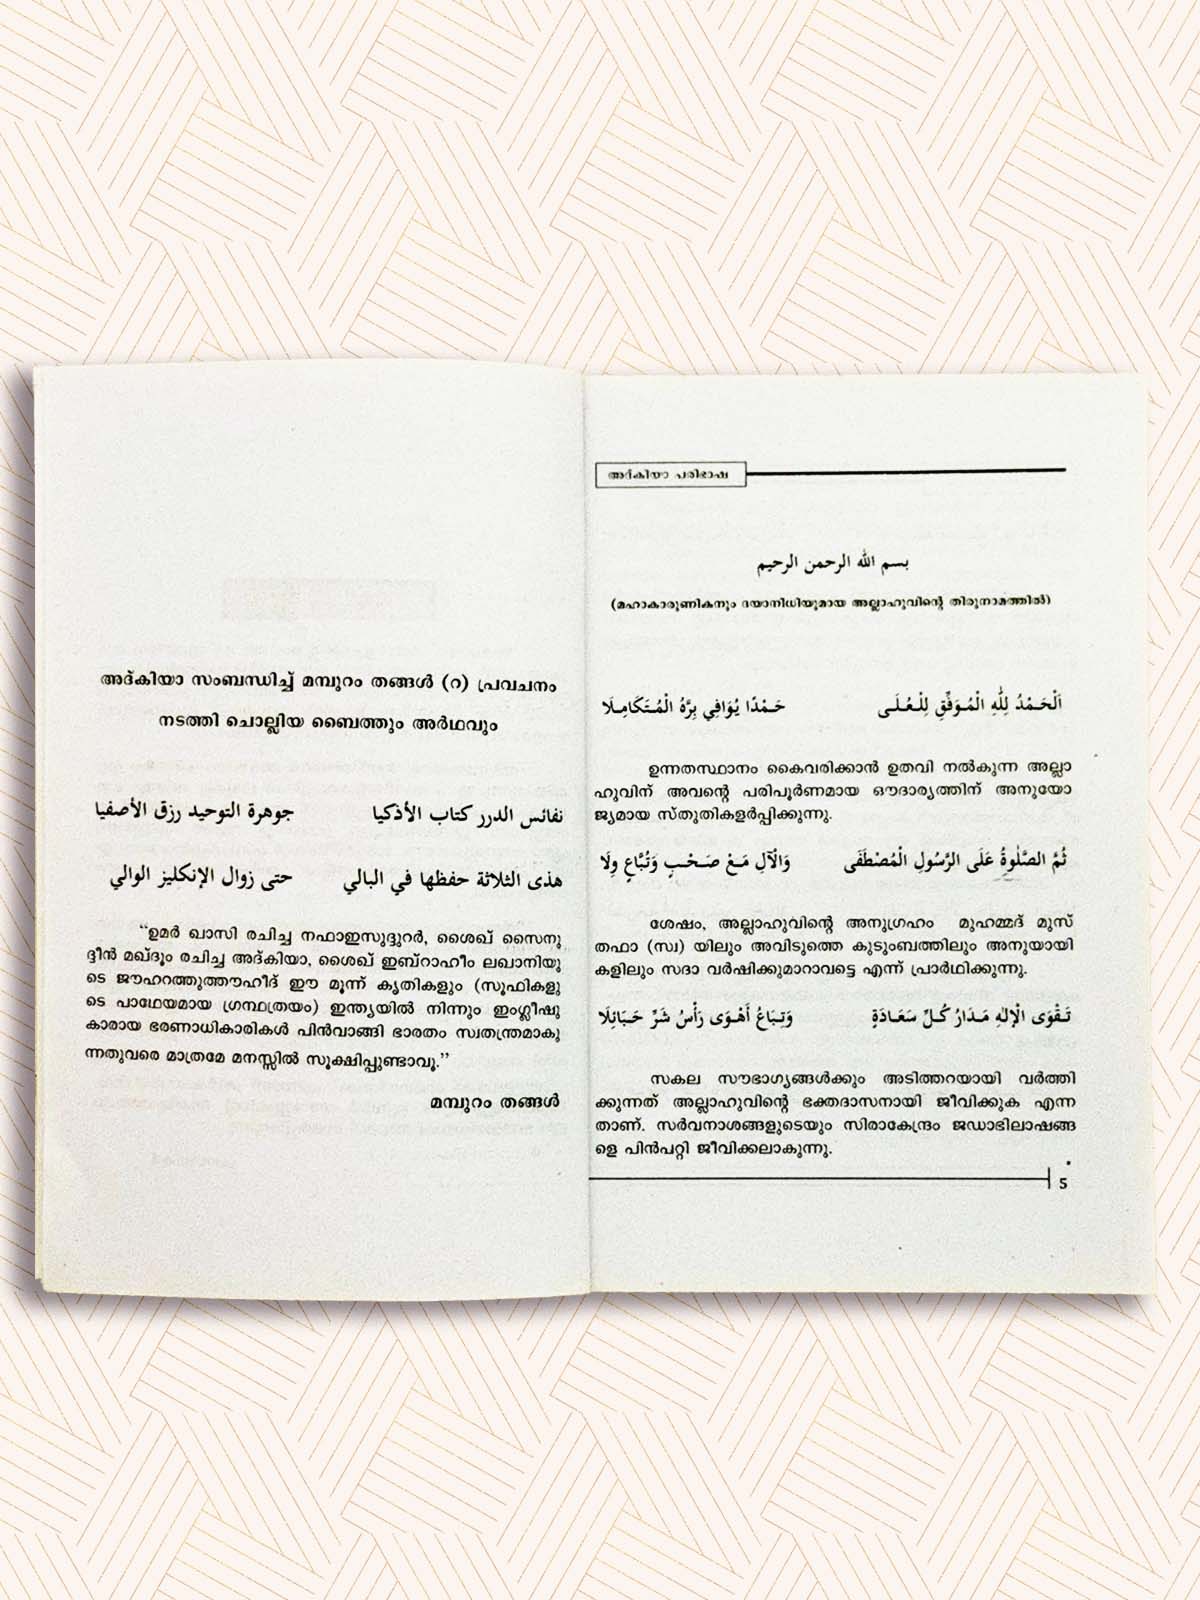 അദ്കിയാ സംബന്ധിച്ച് മമ്പുറം തങ്ങൾ (റ) പ്രവചനം
നടത്തി ചൊല്ലിയ ബൈത്തും അർഥവും
نفائس الدرر كتاب الأذكيا جوهرة التوحيد رزق الأصفيا
هذى الثلاثة حفظها في البالي حتى زوال الإنكليز الوالي
“ഉമർ ഖാസി രചിച്ച നഫാഇസുദ്ദുറർ, ശൈഖ് സൈനു
ദ്ദീൻ മഖ്ദൂം രചിച്ച അദ്കിയാ, ശൈഖ് ഇബ്റാഹീം ലഖാനിയു
ടെ ജൗഹറത്തുത്തൗഹീദ് ഈ മൂന്ന് കൃതികളും (സൂഫികളു
ടെ പാഥേയമായ ഗ്രന്ഥത്രയം) ഇന്ത്യയിൽ നിന്നും ഇംഗ്ലീഷു
കാരായ ഭരണാധികാരികൾ പിൻവാങ്ങി ഭാരതം സ്വതന്ത്രമാകു
ന്നതുവരെ മാത്രമേ മനസ്സിൽ സൂക്ഷിപ്പുണ്ടാവൂ.”
മമ്പുറം തങ്ങൾ
അദ്കിയാ പരിഭാഷ
بسم الله الرحمن الرحيم
(മഹാകാരുണികനും ദയാനിധിയുമായ അല്ലാഹുവിന്റെ തിരുനാമത്തിൽ)
اَلْحَمْدُ لِلّٰهِ الْمُوَفِّقِ لِلْعُلَى حَمْدًا يُوَافِي بِرَّهُ الْمُتَكَامِلَا
ഉന്നതസ്ഥാനം കൈവരിക്കാൻ ഉതവി നൽകുന്ന അല്ലാ
ഹുവിന് അവന്റെ പരിപൂർണമായ ഔദാര്യത്തിന് അനുയോ
ജ്യമായ സ്തുതികളർപ്പിക്കുന്നു.
ثُمَّ الصَّلٰوةُ عَلَى الرَّسُولِ الْمُصْطَفَى وَالْآلِ مَعْ صَحْبٍ وَتُبَّاعٍ وِلَا
ശേഷം, അല്ലാഹുവിന്റെ അനുഗ്രഹം മുഹമ്മദ് മുസ്
തഫാ (സ്വ) യിലും അവിടുത്തെ കുടുംബത്തിലും അനുയായി
കളിലും സദാ വർഷിക്കുമാറാവട്ടെ എന്ന് പ്രാർഥിക്കുന്നു.
تَقْوَى الْإِلٰهِ مَدَارُ كُلِّ سَعَادَةٍ وَتِبَاعُ أَهْوَى رَأْسُ شَرِّ حَبَائِلَا
സകല സൗഭാഗ്യങ്ങൾക്കും അടിത്തറയായി വർത്തി
ക്കുന്നത് അല്ലാഹുവിന്റെ ഭക്തദാസനായി ജീവിക്കുക എന്ന
താണ്. സർവനാശങ്ങളുടെയും സിരാകേന്ദ്രം ജഡാഭിലാഷങ്ങ
ളെ പിൻപറ്റി ജീവിക്കലാകുന്നു.
5